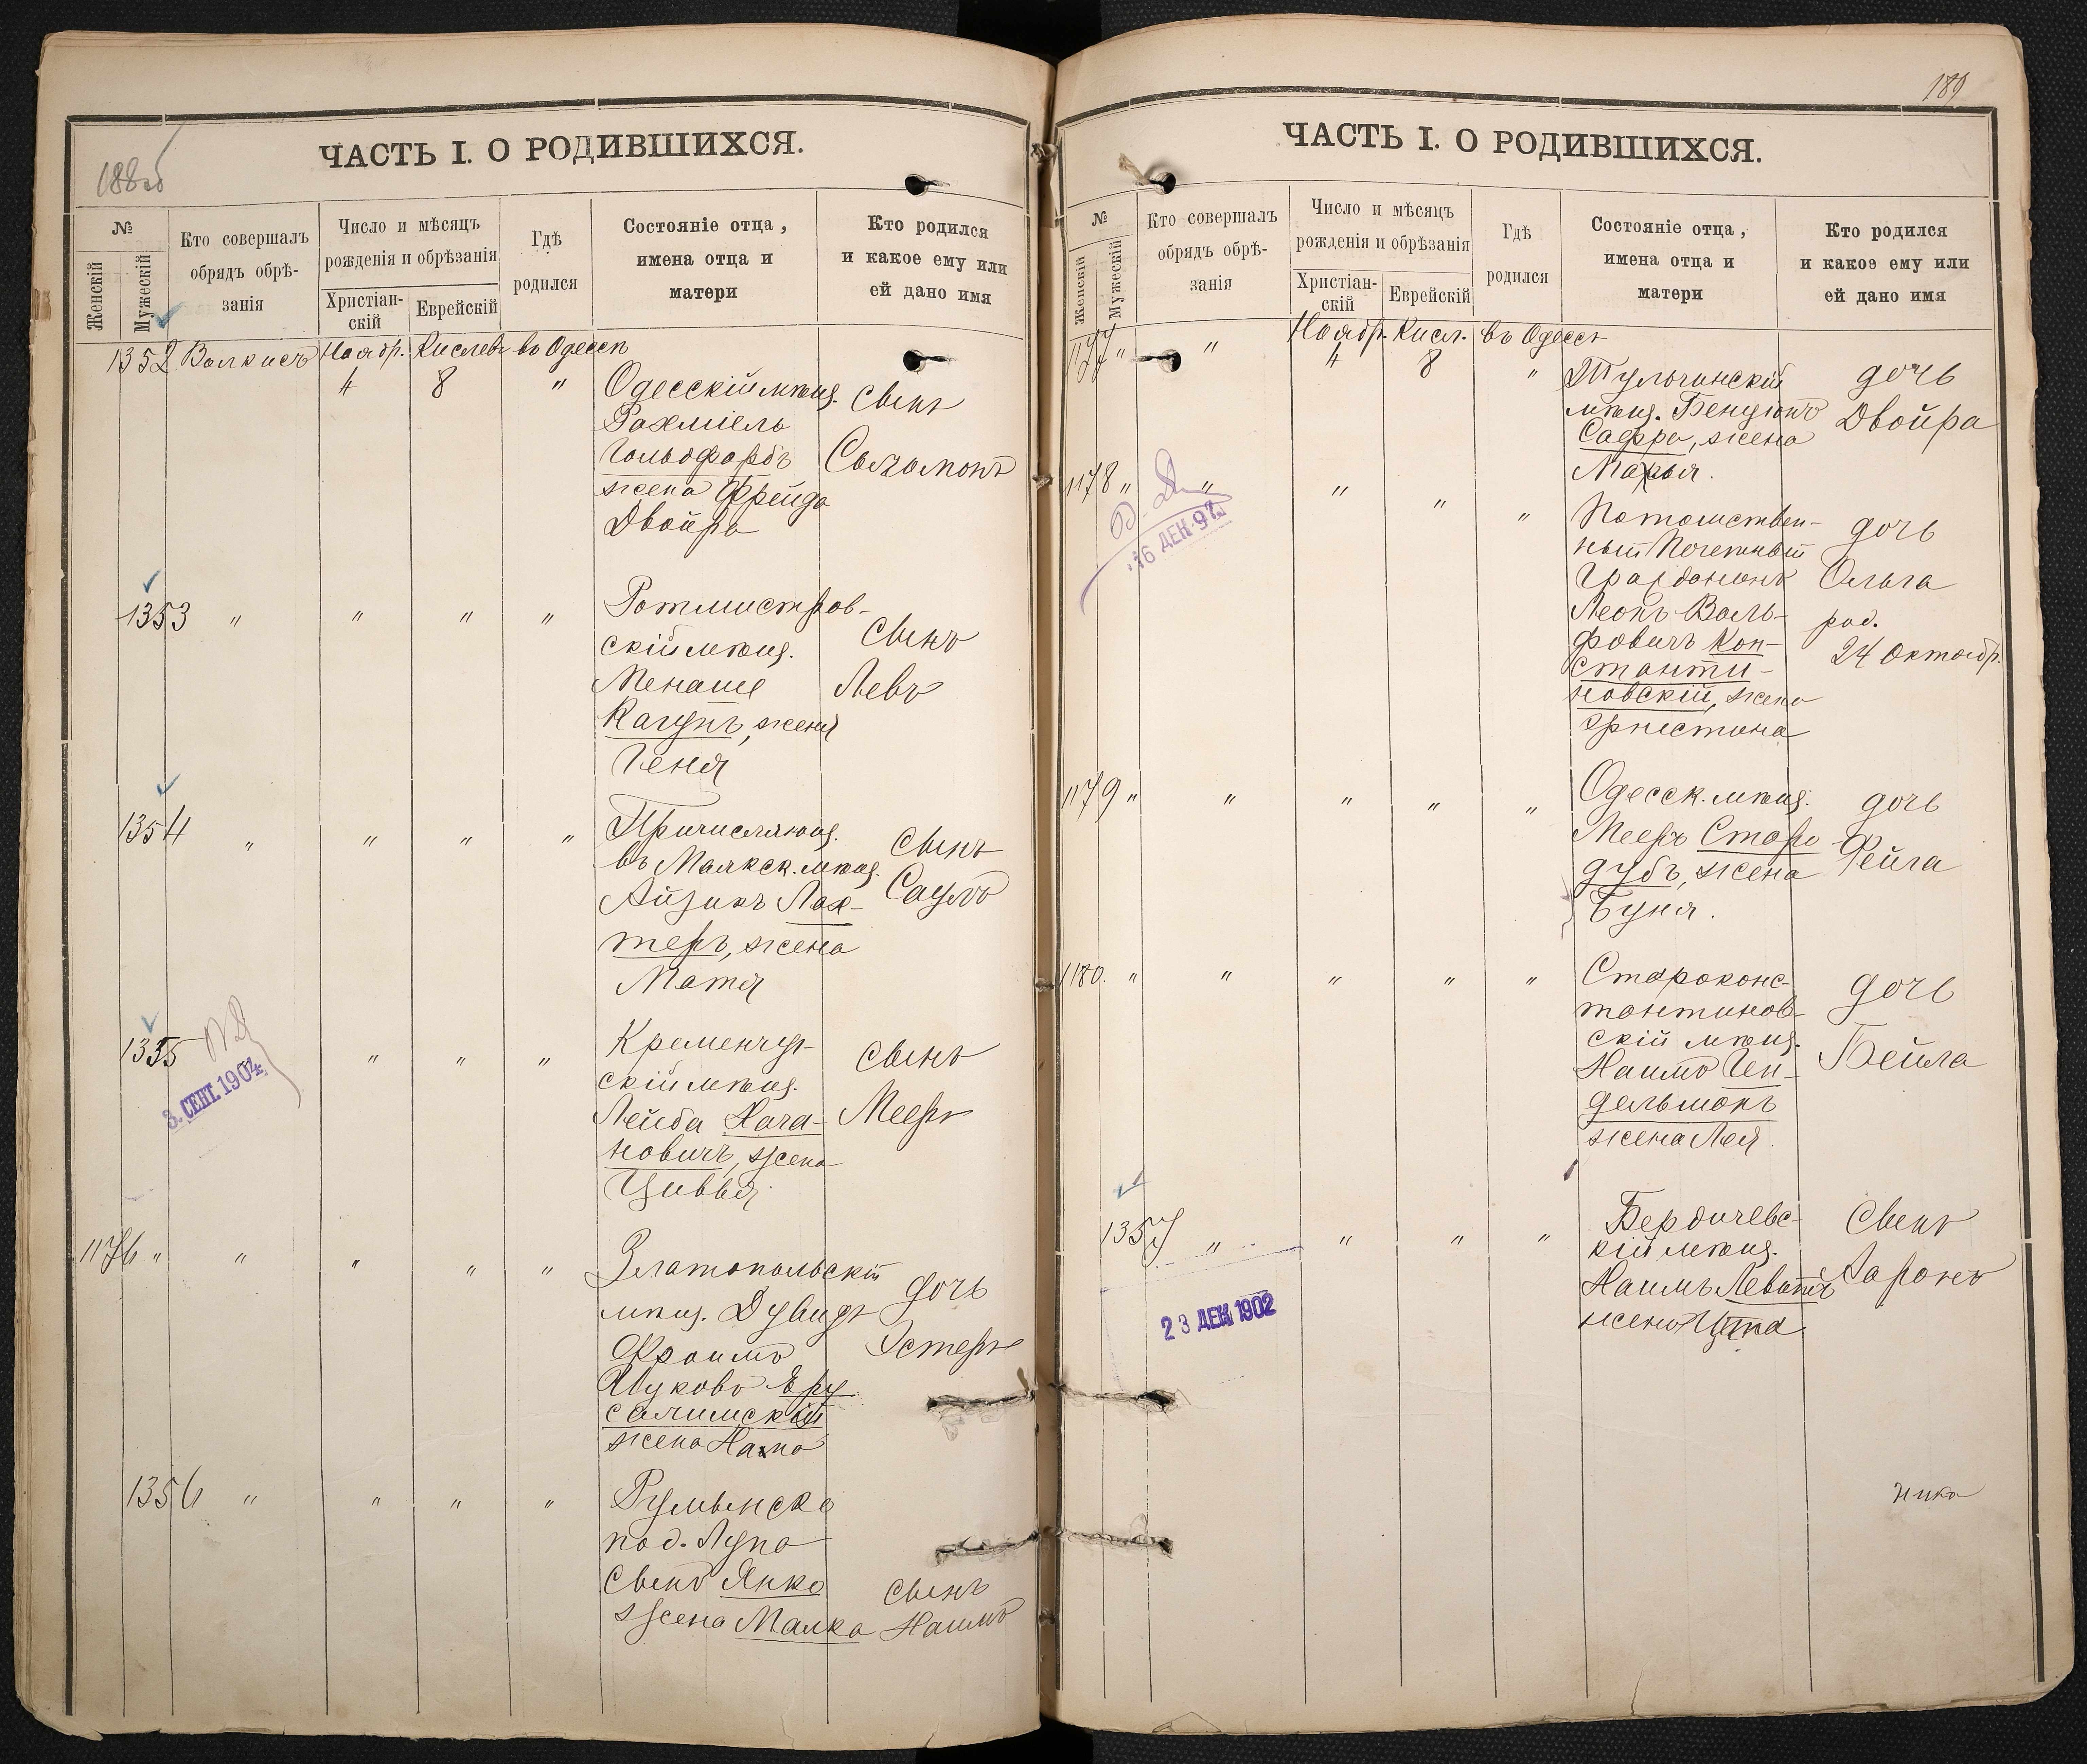 ЧАСТЬ I. О РОДИВШИХСЯ.
№
Женскій
Мужескій
Кто совершалъ
обрядъ обрѣ-
занія
Число и мѣсяцъ
рожденія и обрѣзанія
Христіан-
скій
Еврейскій
Гдѣ
родился
Состояніе отца,
имена отца и
матери
Кто родился
и какое ему или
ей дано имя
1352 Волкисъ Ноябр. Кислевъ въ Одессѣ
4 8 "
Одесскій мѣщ.
Рахміель
Гольдфарбъ
жена Фрейда
Двойра
сынъ
Соломонъ
1353 " " " "
Ротмистров-
скій мѣщ.
Менаше
Кацупъ, жена
Геня
сынъ
Левъ
1354 " " " "
Причисляющ.
въ Маякск. мѣщ.
Айзикъ Лах-
теръ, жена
Матя
сынъ
Саулъ
1355 " " "
3. СЕНТ. 1904
Кременчуг-
скій мѣщ.
Лейба Кага-
новичъ, жена
Цивья
сынъ
Мееръ
1176 " " " " "
Златопольскій
мѣщ. Дувидъ
Фроимъ
Шуковъ Еру
салимскій
жена Нахма
дочь
Эстеръ
1356 " " " "
Румынско
под. Лупа
сынъ Янко
жена Малка
сынъ
Наимъ
189
ЧАСТЬ I. О РОДИВШИХСЯ.
№
Женскій
Мужескій
Кто совершалъ
обрядъ обрѣ-
занія
Число и мѣсяцъ
рожденія и обрѣзанія
Христіан-
скій
Еврейскій
Гдѣ
родился
Состояніе отца,
имена отца и
матери
Кто родился
и какое ему или
ей дано имя
1177 " " Ноябр. Кисл. въ Одессѣ
4 8 "
Тульчинскій
мѣщ. Бенціонъ
Сафра, жена
Марья.
дочь
Двойра
1178 " " " " "
16 ДЕК. 97
Потомствен-
ный Почетный
Гражданинъ
Леонъ Воль-
фовичъ Кон-
станти-
новскій, жена
Эрнестина
дочь
Ольга
род.
24 Октябр.
1179 " " " " "
Одесск. мѣщ.
Мееръ Старо
дубъ, жена
Буня.
дочь
Фейга
1180. " " " " "
Староконс-
тантинов-
скій мѣщ.
Наимъ Ген-
дельманъ
жена Лея.
дочь
Бейла
1357 " " " "
23 ДЕК 1902
Бердичевс-
кій мѣщ.
Наимъ Левитъ
жена Ципа
сынъ
Ааронъ